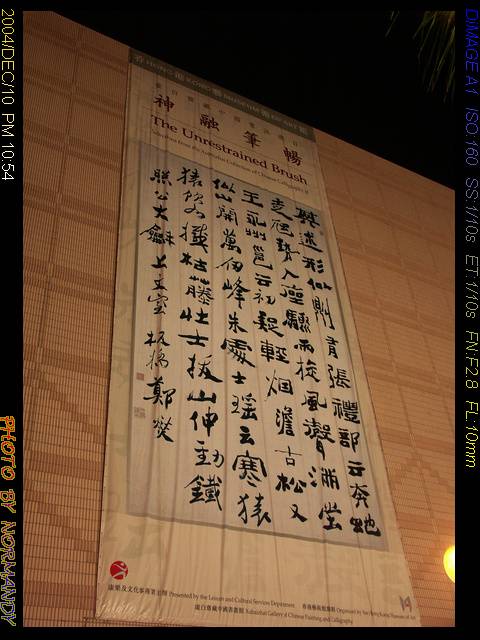 香港 HONG KONG 藝術 MUSEUM OF ART 館
神融筆暢
The Unrestrained Brush
述形似則有張禮部云奔蛇
走虺勢入座驟雨旋風聲滿堂
王永州邕云初疑輕烟澹古松又
似山開萬仞峰朱處士瑤云寒猿
猿飲水撼枯藤壯士拔山伸勁鐵
公大龢上文室 板橋鄭燮
康樂及文化事務署主辦 Presented by the Leisure and Cultural Services Department
香港藝術館籌劃 Organised by the Hong Kong Museum of Art
虛白齋藏中國書畫館 Xubaizhai Gallery of Chinese Painting and Calligraphy
19
2004/DEC/10 PM 10:54
PHOTO BY NORMANDY
DiMAGE A1 ISO:160 SS:1/10s ET:1/10s FN:F2.8 FL:10mm